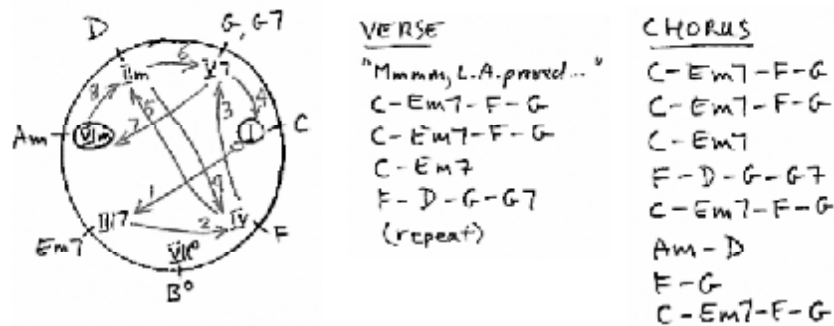 D
G, G7
IIm
V7
Am
VIm
I
C
8
6
5
3
4
7
9
1
2
Em7
III7
IV
F
VII°
B°
VERSE
"Mmmm, L.A. proved..."
C - Em7 - F - G
C - Em7 - F - G
C - Em7
F - D - G - G7
(repeat)
CHORUS
C - Em7 - F - G
C - Em7 - F - G
C - Em7
F - D - G - G7
C - Em7 - F - G
Am - D
F - G
C - Em7 - F - G